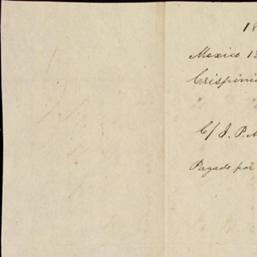 18
Mexico 1
Crispin
C/ J. P. M
Pagado por